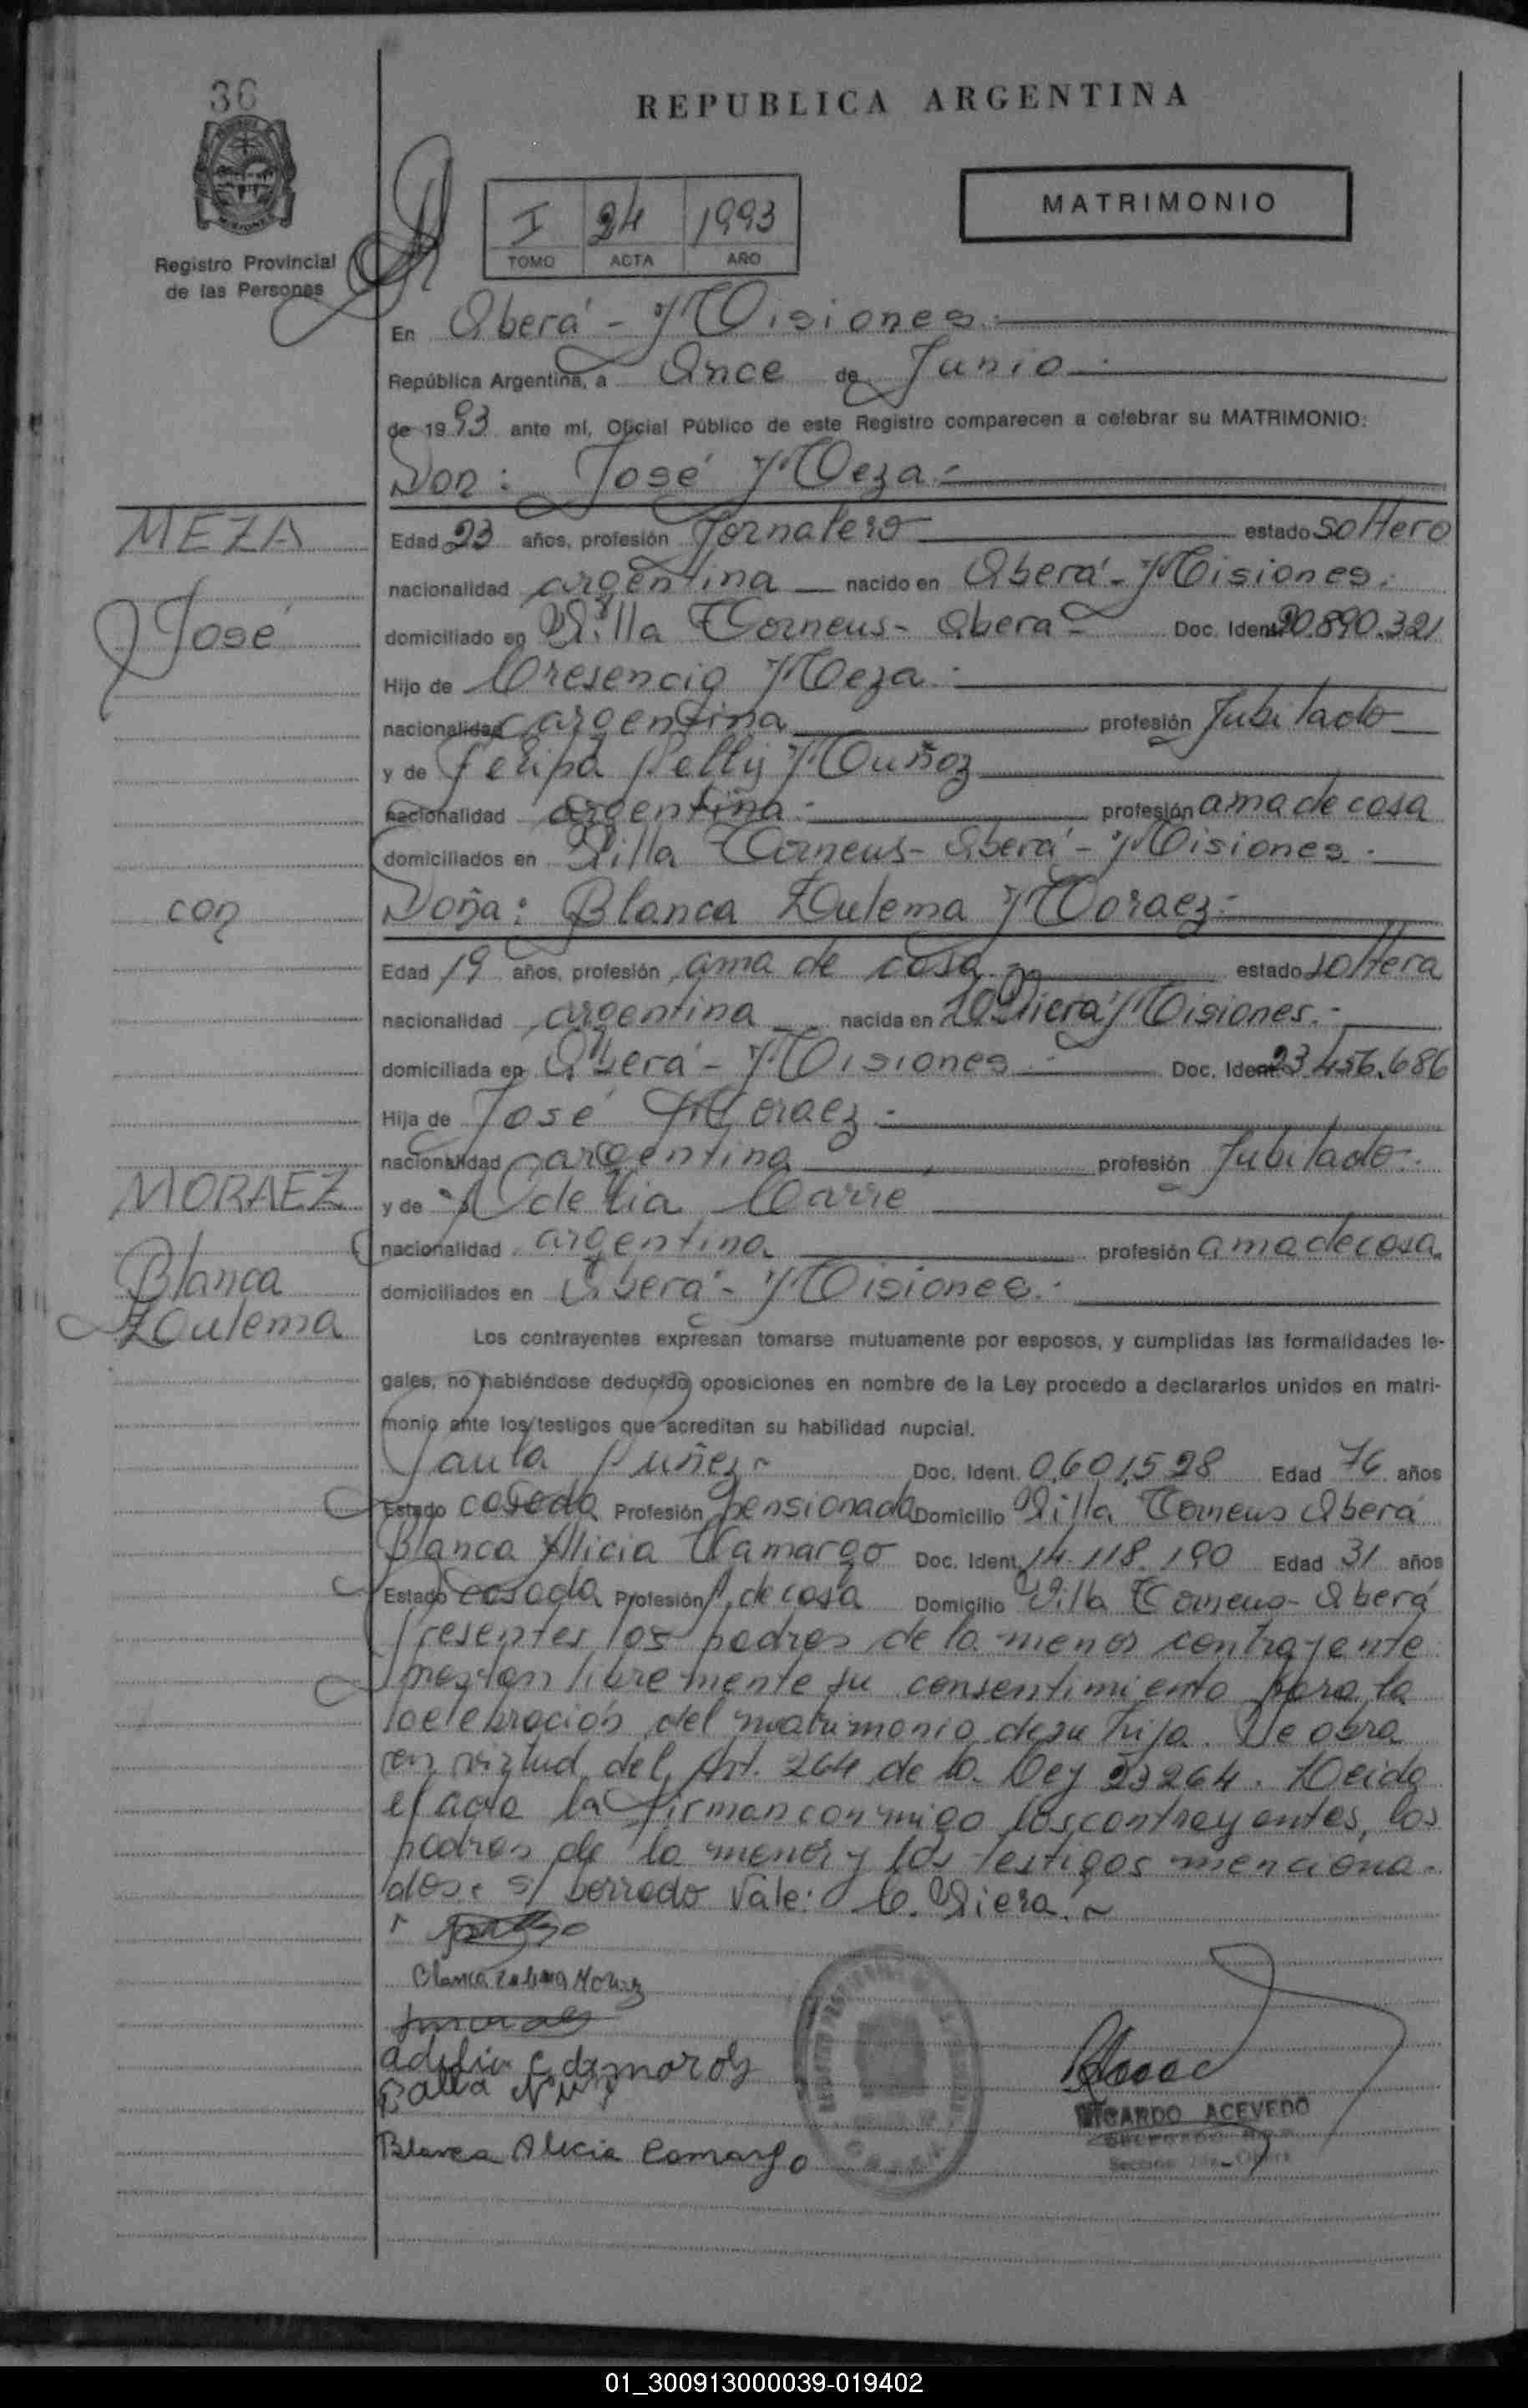 36
REPUBLICA ARGENTINA
MATRIMONIO
I 24 1993
TOMO ACTA AÑO
Registro Provincial
de las Personas
En Oberá - Misiones.
República Argentina, a Once de Junio
de 1993 ante mí, Oficial Público de este Registro comparecen a celebrar su MATRIMONIO:
Don: José Meza.-
MEZA
Edad 23 años, profesión Jornalero estado soltero
nacionalidad argentina nacido en Oberá - Misiones.
José
domiciliado en Villa Torneus - Oberá - Doc. Ident. 20.890.321
Hijo de Cresencio Meza.
nacionalidad argentina profesión Jubilado
y de Felipa Nelly Muñoz
nacionalidad argentina.- profesión ama de casa
domiciliados en Villa Torneus - Oberá - Misiones.
con
Doña: Blanca Zulema Moraez.-
Edad 19 años, profesión ama de casa.- estado soltera
nacionalidad argentina nacida en Misiones.-
domiciliada en Oberá - Misiones Doc. Ident. 23.456.686
Hija de José Moraez.-
nacionalidad argentina profesión Jubilado.
MORAEZ
y de Adelia Carré
nacionalidad argentina profesión ama de casa
Blanca
domiciliados en Oberá - Misiones.
Zulema
Los contrayentes expresan tomarse mutuamente por esposos, y cumplidas las formalidades le-
gales, no habiéndose deducido oposiciones en nombre de la Ley procedo a declararlos unidos en matri-
monio ante los testigos que acreditan su habilidad nupcial.
Paula Nuñez Doc. Ident. 0.601.528 Edad 76 años
Estado casada Profesión pensionada Domicilio Villa Torneus Oberá
Blanca Alicia Camargo Doc. Ident. 14.118.190 Edad 31 años
Estado casada Profesión A. de casa Domicilio Villa Torneus - Oberá
Presentes los padres de la menor contrayente
prestan libremente su consentimiento para la
celebración del matrimonio de su hija. Se obra
en virtud del Art. 264 de la Ley 23264. Leida
el acta la firman conmigo los contrayentes, los
padres de la menor y los testigos menciona-
dos. s/ borrado Vale: C. Viera.
Blanca Zulema Moraez
Paula Nuñez
Blanca Alicia Camargo
RICARDO ACEVEDO
01_300913000039-019402